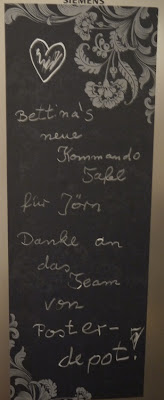 SIEMENS
Bettina's
neue
Kommando
Tafel
für Jörn
Danke an
das
Team
von
Poster-
depot!